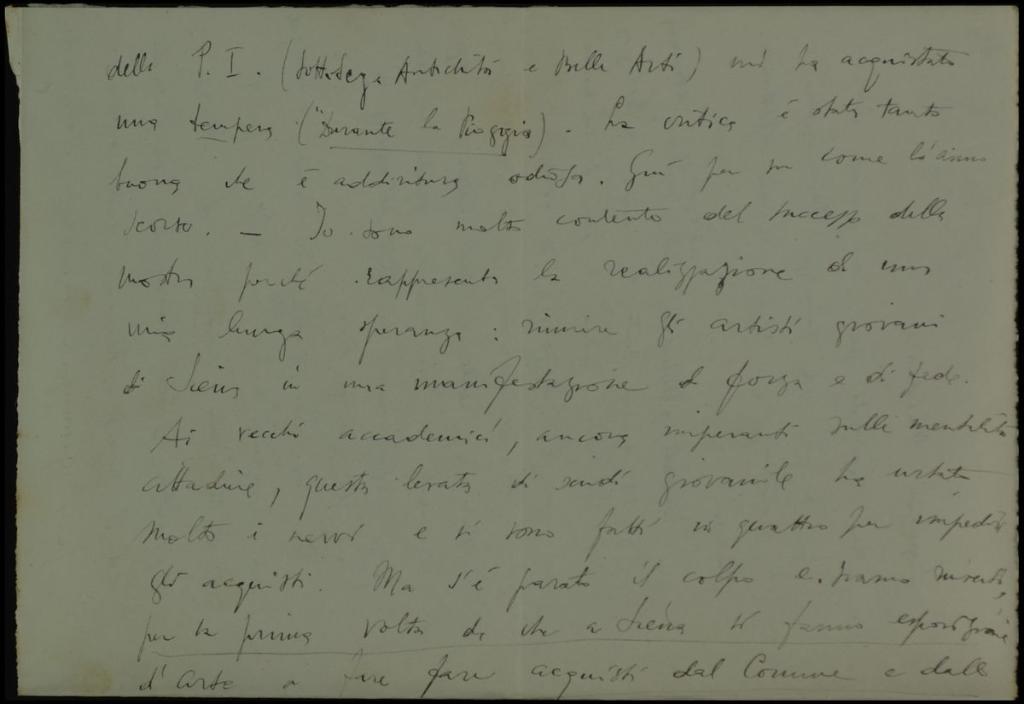 della P.I. (Sottosega Antichità e Belle Arti) mi ha acquistato
una tempera ("Durante la Pioggia). La critica è stata tanto
buona che è addirittura odiosa. Giù per su come l'anno
scorso. — Io sono molto contento del successo della
mostra perché rappresenta la realizzazione di una
mia lunga speranza: riunire gli artisti giovani
di Siena in una manifestazione di forza e di fede.
Ai vecchi accademici, ancora imperanti sulla mentalità
cittadina, questa levata di scudi giovanile ha urtato
molto i nervi e si sono fatti in quattro per impedire
gli acquisti. Ma s'è parato il colpo e siamo riusciti,
per la prima volta da che a Siena si fanno esposizioni
d'arte a fare acquisti dal Comune e dalle